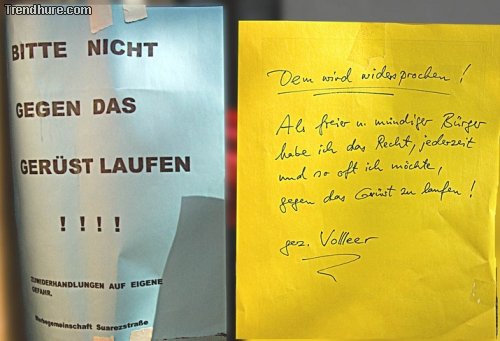 Trendhure.com
BITTE NICHT
GEGEN DAS
GERÜST LAUFEN
! ! ! !
ZUWIDERHANDLUNGEN AUF EIGENE
GEFAHR.
Werbegemeinschaft Suarezstraße
Dem wird widersprochen !
Als freier u. mündiger Bürger
habe ich das Recht, jederzeit
und so oft ich möchte,
gegen das Gerüst zu laufen !
gez. Volleer